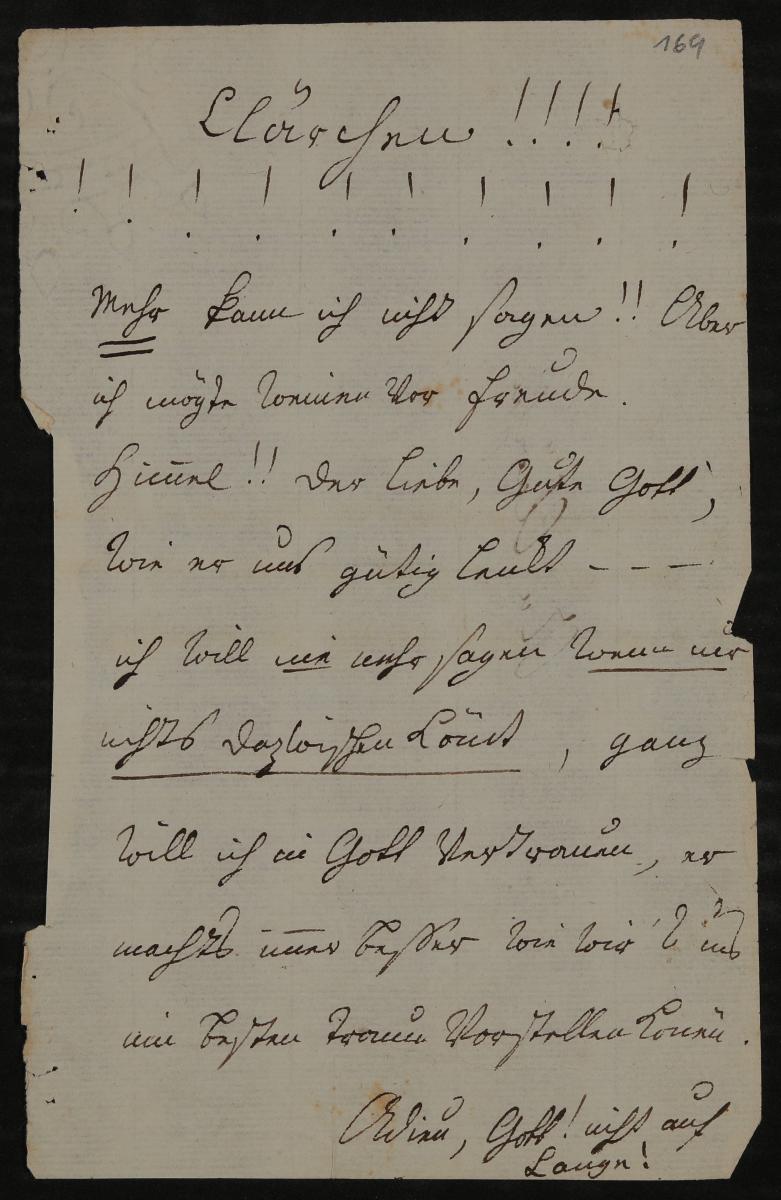 169
Clärchen !!!!
! ! ! ! ! ! ! ! ! !
Mehr kann ich nicht sagen!! Aber
ich mögte weinen vor Freude.
Him̅el!! Der liebe, Gute Gott,
wie er uns gütig lenkt – – –
ich will nie mehr sagen wenn nur
nichts dazwischen köm̅t, ganz
will ich in Gott vertrauen, er
machts im̅er besser wie wir's uns
im besten Traum vorstellen kön̅en.
Adieu, Gott! nicht auf
Lange!